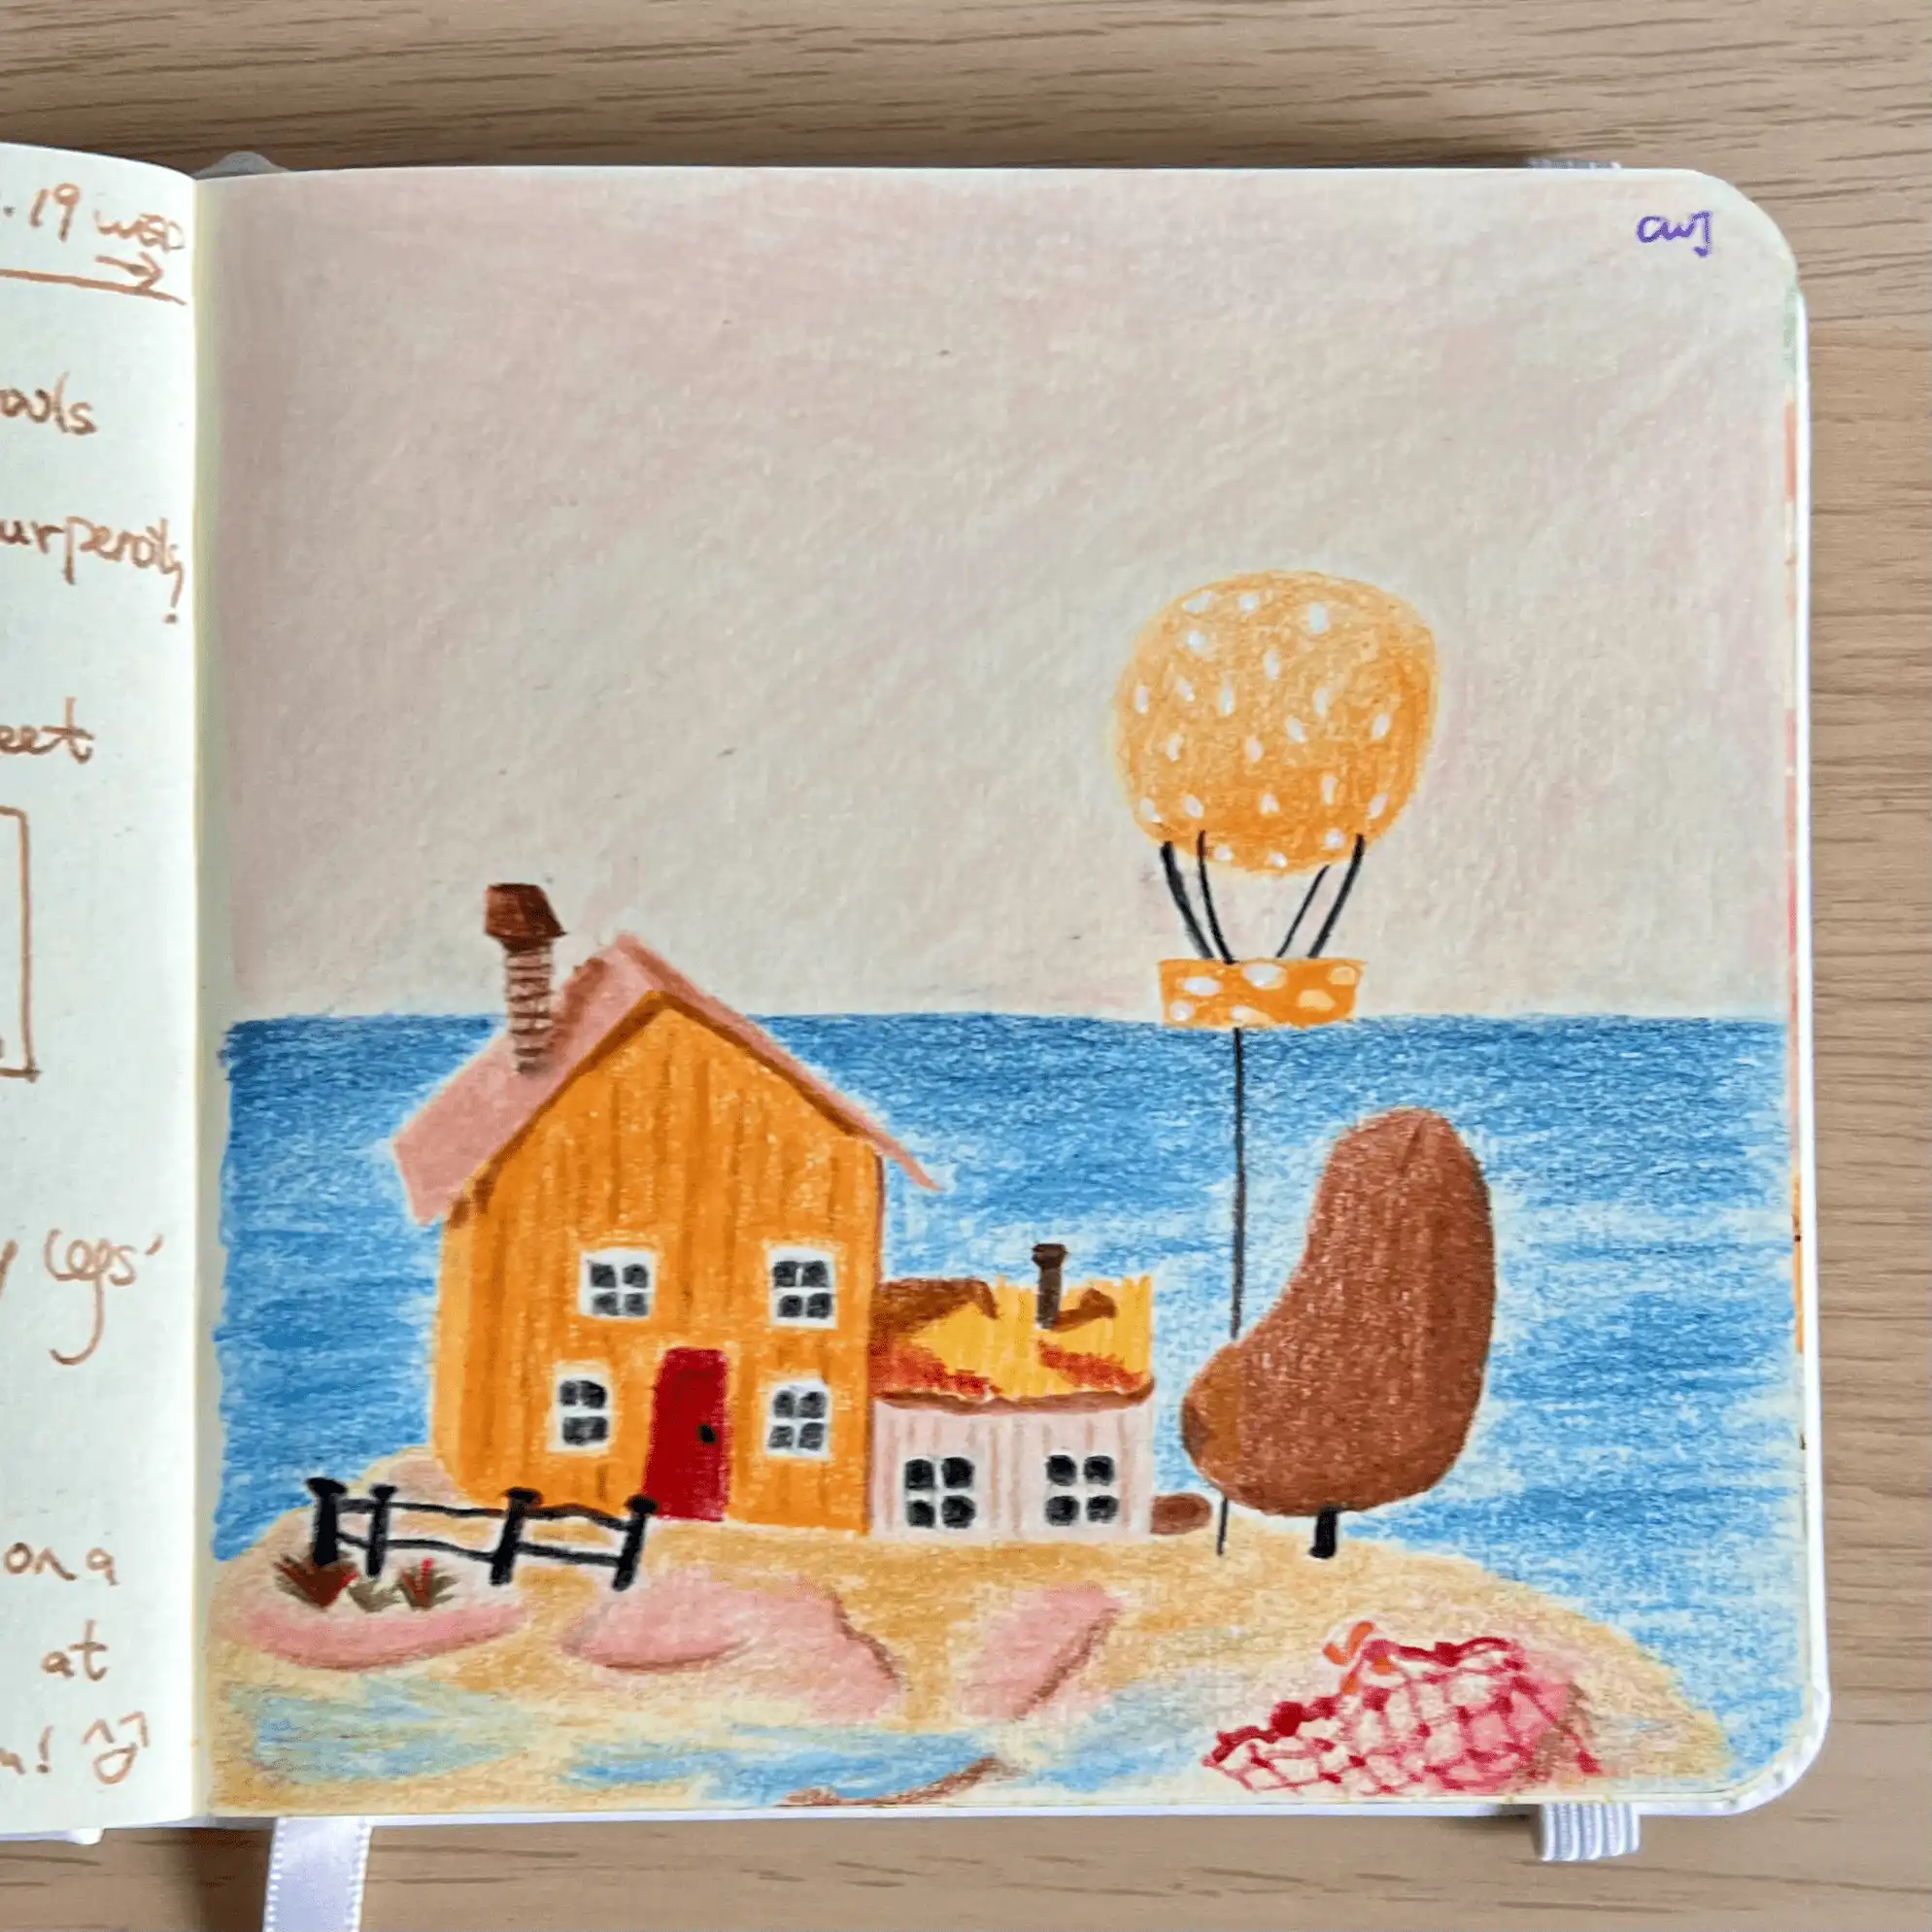 .19 WED
owls
ur pencils!
eet
y legs'
on a
at
m!
CWJ